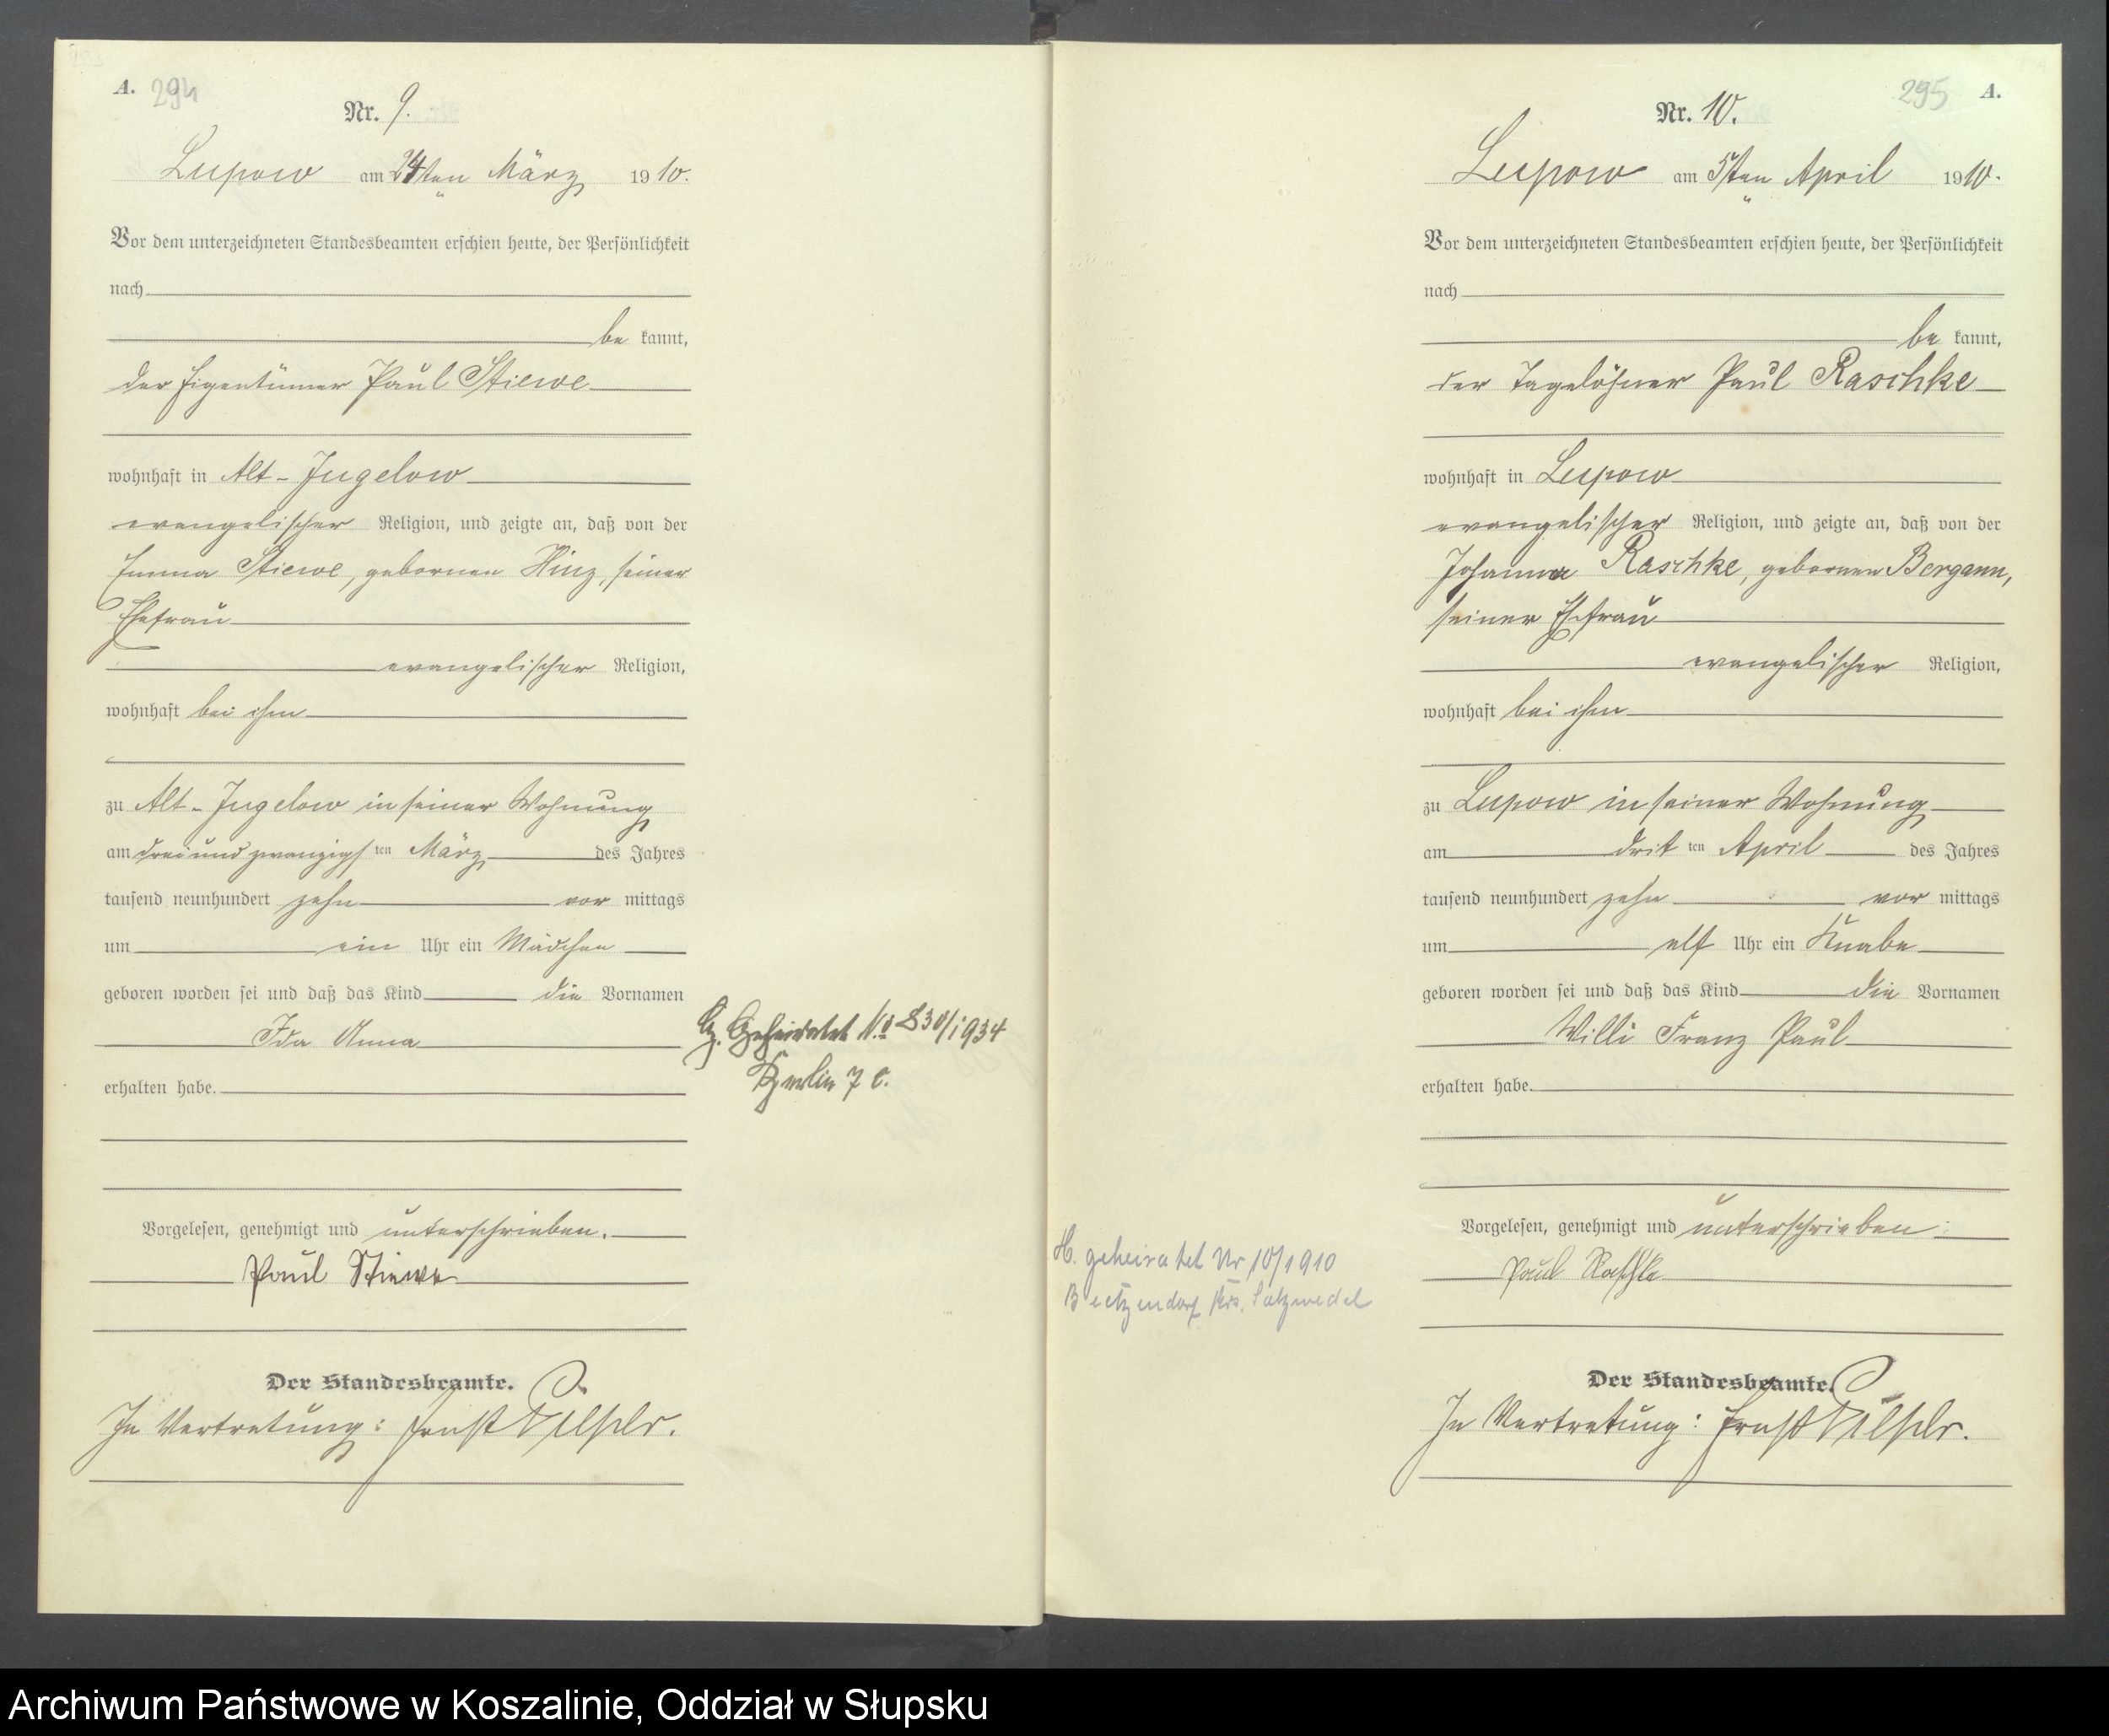 A. 294
Nr. 9.
Lupow am 24ten März 1910.
Vor dem unterzeichneten Standesbeamten erschien heute, der Persönlichkeit
nach
be kannt,
der Eigentümer Paul Stiewe
wohnhaft in Alt-Jugelow
evangelischer Religion, und zeigte an, daß von der
Emma Stiewe, geborenen Hinz, seiner
Ehefrau
evangelischer Religion,
wohnhaft bei ihm
zu Alt-Jugelow in seiner Wohnung
am dreiundzwanzigsten März des Jahres
tausend neunhundert zehn vor mittags
um ein Uhr ein Mädchen
geboren worden sei und daß das Kind die Vornamen
Ida Anna
erhalten habe.
Vorgelesen, genehmigt und unterschrieben.
Paul Stiewe
Der Standesbeamte.
In Vertretung: Ernst
G. Geheiratet No 830/1934
Berlin 7 c.
295 A.
Nr. 10.
Lupow am 5ten April 1910.
Vor dem unterzeichneten Standesbeamten erschien heute, der Persönlichkeit
nach
be kannt,
der Tagelöhner Paul Raschke
wohnhaft in Lupow
evangelischer Religion, und zeigte an, daß von der
Johanna Raschke, geborenen Bergann,
seiner Ehefrau
evangelischer Religion,
wohnhaft bei ihm
zu Lupow in seiner Wohnung
am dritten April des Jahres
tausend neunhundert zehn vor mittags
um elf Uhr ein Knabe
geboren worden sei und daß das Kind die Vornamen
Willi Franz Paul
erhalten habe.
Vorgelesen, genehmigt und unterschrieben:
Paul Raschke
Der Standesbeamte.
In Vertretung: Ernst
H. geheiratet Nr 10/1910
Beetzendorf Krs. Salzwedel
Archiwum Państwowe w Koszalinie, Oddział w Słupsku